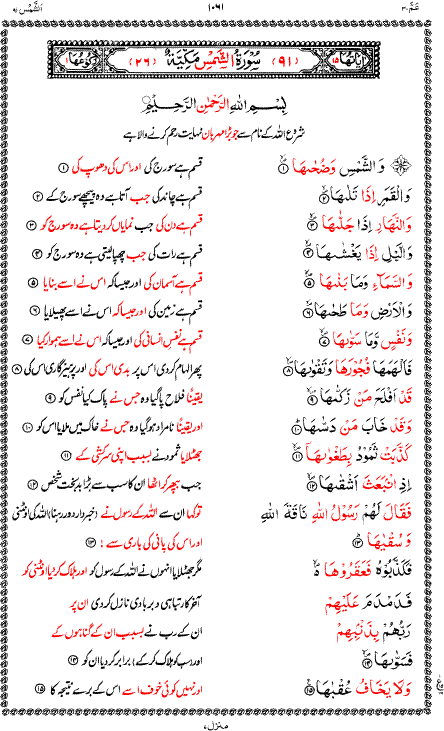 عَمّ ٣٠ ١٠٦١ اَلشَّمْس ٩١
اٰيَاتُهَا ١٥ (٩١) سُوْرَةُ الشَّمْسِ مَكِّيَّةٌ (٢٦) رُكُوْعُهَا ١
بِسْمِ اللّٰهِ الرَّحْمٰنِ الرَّحِيْمِ
شروع اللہ کے نام سے جو بڑا مہربان نہایت رحم کرنے والا ہے
وَالشَّمْسِ وَضُحٰىهَا ۪ۙ‏ ﴿۱﴾ قسم ہے سورج کی اور اس کی دھوپ کی ﴿۱﴾
وَالْقَمَرِ اِذَا تَلٰىهَا ۪ۙ‏ ﴿۲﴾ قسم ہے چاند کی جب آتا ہے وہ پیچھے سورج کے ﴿۲﴾
وَالنَّهَارِ اِذَا جَلّٰىهَا ۪ۙ‏ ﴿۳﴾ قسم ہے دن کی جب نمایاں کر دیتا ہے وہ سورج کو ﴿۳﴾
وَالَّيْلِ اِذَا يَغْشٰىهَا ۪ۙ‏ ﴿۴﴾ قسم ہے رات کی جب چھپا لیتی ہے وہ سورج کو ﴿۴﴾
وَالسَّمَآءِ وَمَا بَنٰىهَا ۪ۙ‏ ﴿۵﴾ قسم ہے آسمان کی اور جیسا کہ اس نے اسے بنایا ﴿۵﴾
وَالْاَرْضِ وَمَا طَحٰىهَا ۪ۙ‏ ﴿۶﴾ قسم ہے زمین کی اور جیسا کہ اس نے اسے پھیلایا ﴿۶﴾
وَنَفْسٍ وَّمَا سَوّٰىهَا ۪ۙ‏ ﴿۷﴾ قسم ہے نفسِ انسانی کی اور جیسا کہ اس نے اسے ہموار کیا ﴿۷﴾
فَاَلْهَمَهَا فُجُوْرَهَا وَتَقْوٰىهَا ۪ۙ‏ ﴿۸﴾ پھر الہام کر دی اس پر بدی اس کی اور پرہیزگاری اس کی ﴿۸﴾
قَدْ اَفْلَحَ مَنْ زَكّٰىهَا ۪ۙ‏ ﴿۹﴾ یقینًا فلاح پا گیا وہ جس نے پاک کیا نفس کو ﴿۹﴾
وَقَدْ خَابَ مَنْ دَسّٰىهَا ؕ‏ ﴿۱۰﴾ اور یقینًا نامراد ہو گیا وہ جس نے خاک میں ملایا اس کو ﴿۱۰﴾
كَذَّبَتْ ثَمُوْدُ بِطَغْوٰىهَآ ۪ۙ‏ ﴿۱۱﴾ جھٹلایا ثمود نے بسبب اپنی سرکشی کے ﴿۱۱﴾
اِذِ انْۢبَعَثَ اَشْقٰىهَا ۪ۙ‏ ﴿۱۲﴾ جب بپھر کر اٹھا ان کا سب سے بڑا بدبخت شخص ﴿۱۲﴾
فَقَالَ لَهُمْ رَسُوْلُ اللّٰهِ نَاقَةَ اللّٰهِ تو کہا ان سے اللہ کے رسول نے (خبردار دور رہنا) اللہ کی اونٹنی
وَسُقْيٰهَا ؕ‏ ﴿۱۳﴾ اور اس کی پانی کی باری سے! ﴿۱۳﴾
فَكَذَّبُوْهُ فَعَقَرُوْهَا ۪ۙ مگر جھٹلایا انہوں نے اللہ کے رسول کو اور ہلاک کر دیا اونٹنی کو
فَدَمْدَمَ عَلَيْهِمْ آخر کار تباہی و بربادی نازل کر دی ان پر
رَبُّهُمْ بِذَنْۢبِهِمْ ان کے رب نے بسبب ان کے گناہوں کے
فَسَوّٰىهَا ۪ۙ‏ ﴿۱۴﴾ اور سب کو (ہلاک کر کے) برابر کر دیا ان کو ﴿۱۴﴾
وَلَا يَخَافُ عُقْبٰهَا ﴿۱۵﴾ اور نہیں کوئی خوف اسے اس کے برے نتیجہ کا ﴿۱۵﴾
منزل ۷